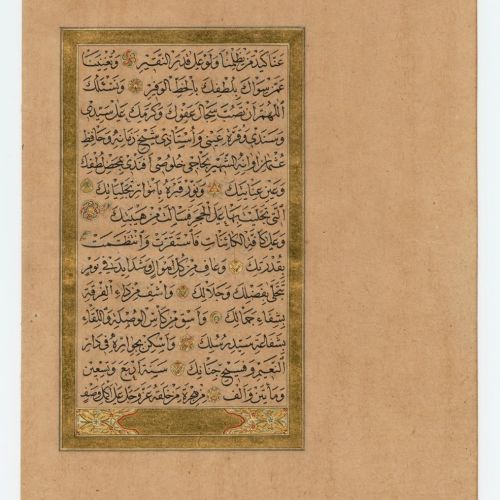 عنا كيد من يظلمنا ولو على قدر النقير وتغنينا
عمن سواك بلطفك بالحظ الوفير ونسئلك
اللهم ان تصب سجال عفوك وكرمك على سيدي
وسندي وقرة عيني واستادي شيخ زمانه وحافظ
عثمان اوانه الشهير بحاجي خلوصي افندي بمحض لطفك
وعين عنايتك ونور قبره بانوار تجلياتك
التي تجليت بها على الحجر فسال من هيبتك
وعلى كافة الكائنات فاستقرت وانتظمت
بقدرتك وعاف من كل اهوال وشدايد في يوم
تتجلى بفضلك وجلالك واشف من داء الفرقة
بشفاء جمالك واسق من كأس الوصلة واللقاء
بشفاعة سيد رسلك واسكن بجواره في دار
النعيم وفسيح جنانك سنة اربع وتسعين
ومأتين والف من هجرة من خلقه عز وجل على اكمل وصف